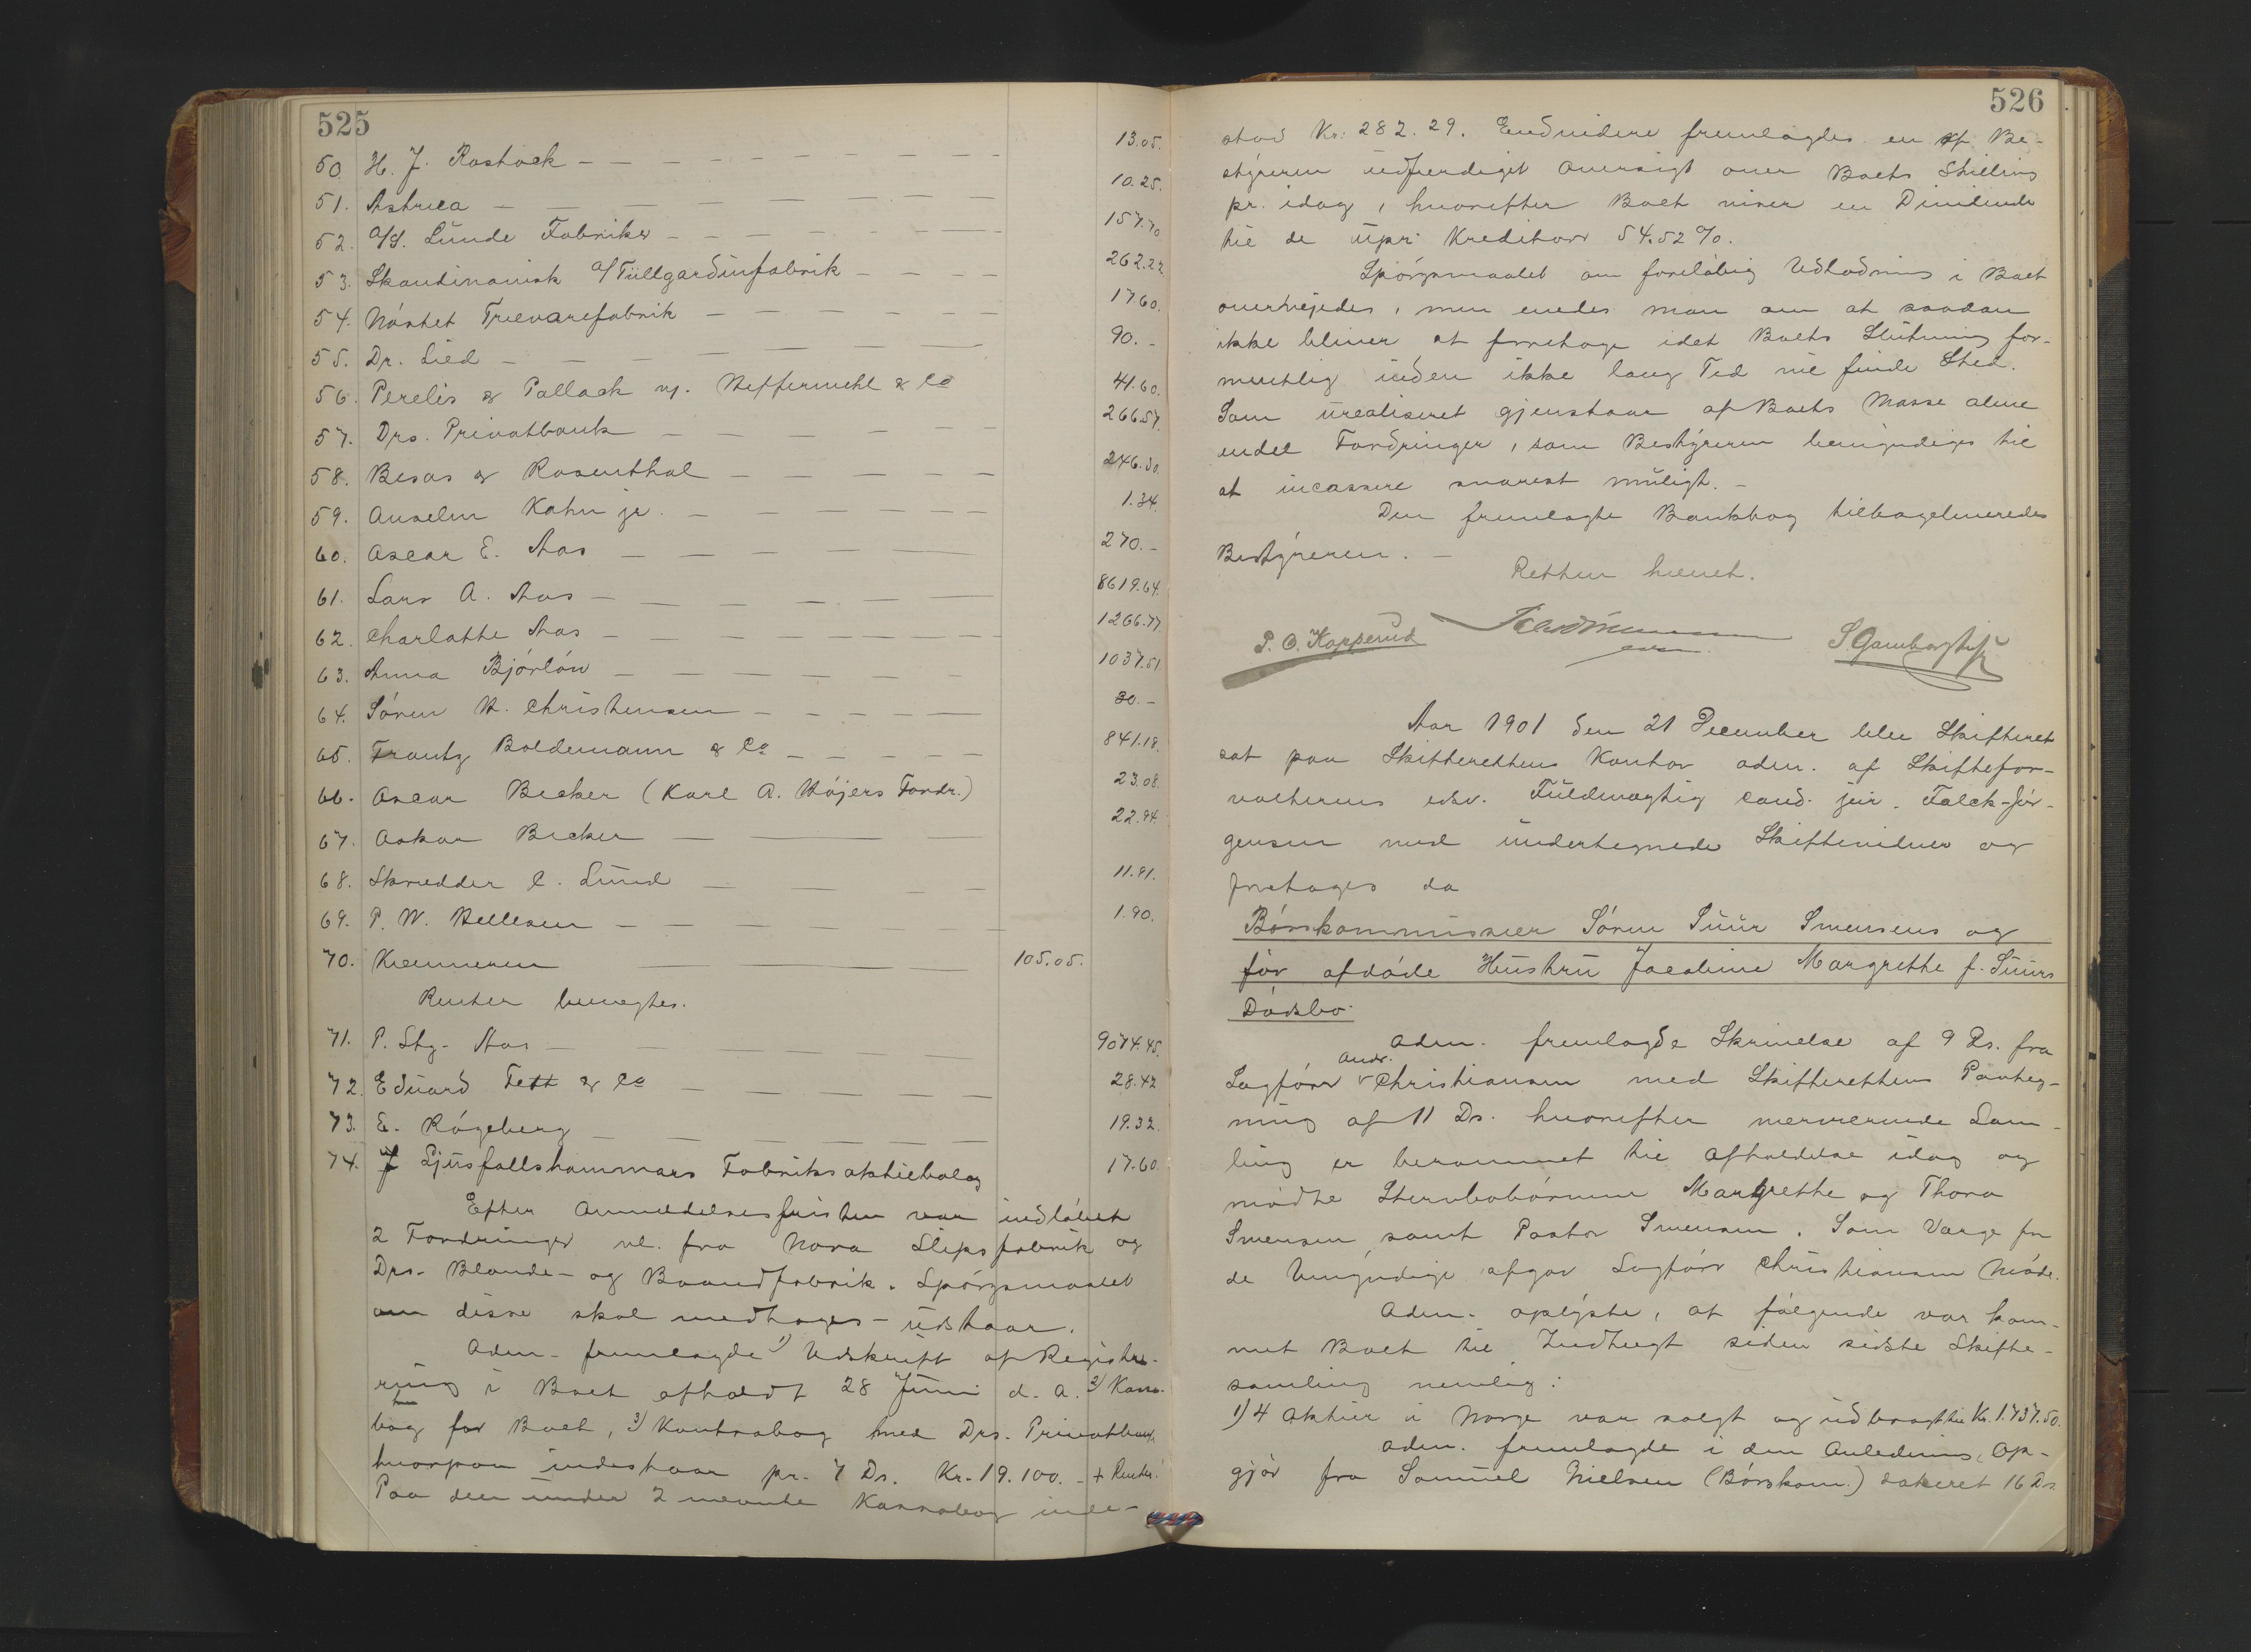 525
50. H. J. Rostock — 13.05.
51. Astrea — 10.25.
52. A/S. Lunde Fabriker — 157.70
53. Skandinavisk A/ Tüllgardinfabrik — 262.22.
54. Nöstet Trævarefabrik — 17.60.
55. Dr. Lied — 90.-
56. Perelis & Pollack v/. Heffermehl & Co 41.60.
57. Drs. Privatbank — 266.57.
58. Besas & Rosenthal — 246.50.
59. Anselm Kahn jr. — 1.34.
60. Oscar E. Aas — 270.-
61. Lars A. Aas — 8619.64.
62. Charlotte Aas — 1266.77.
63. Anna Björlöv — 1037.51.
64. Sören H. Christensen — 30.-
65. Frantz Boldemann & Co — 841.18.
66. Oscar Becker (Karl A. Höjers Fordr.) 23.08.
67. Oskar Becker — 22.94.
68. Skrædder C. Lund — 11.81.
69. P. W. Hellesen — 1.90.
70. Kæmneren — 105.05.
Renter benegtes.
71. P. Stg. Aas — 9074.45.
72. Eduard Fett & Co — 28.42
73. E. Rögeberg — 19.32.
74. Ljusfallshammars Fabriksaktiebolag 17.60.
Efter Anmeldelsesfristen var indløbet
2 Fordringer vl. fra Nora Slipsfabrik og
Drs. Blonde- og Baandfabrik. Spörgsmaalet
om disse skal medtages - udstaar.
Adm. fremlagde 1) Udskrift af Registre-
ring i Boet afholdt 28 Juni d. A. 2) Kasse-
bog for Boet, 3) Kontrabog med Drs. Privatbank
hvorpaa indestaar pr. 7 Ds. Kr. 19.100.- + Renter.
Paa den under 2 nævnte Kassabog inde-
526
stod Kr: 282.29. Endvidere fremlagdes en af Be-
styreren udfærdiget Oversigt over Boets Stilling
pr. idag, hvorefter Boet viser en Dividende
til de upr. Kreditorer 54.52 %.
Spörgsmaalet om forelöbig Udlodning i Boet
overvejedes, men enedes man om at saadan
ikke bliver at foretage idet Boets Slutning for-
mentlig inden ikke lang Tid vil finde Sted.
Som urealiseret gjenstaar af Boets Masse alene
endel Fordringer, som Bestyreren bemyndiges til
at incassere snarest muligt. -
Den fremlagte Bankbog tilbageleveredes
Bestyreren. -
Retten hævet.
P. O. Kopperud
Aar 1901 den 21 December blev Skifteret
sat paa Skifterettens Kontor adm. af Skiftefor-
valterens edsv. Fuldmægtig cand. jur. Falck-Jör-
gensen med undertegnede Skiftevidner og
foretoges da
Börskommissær Sören Suur Svensens og
för afdöde Hustru Jacobine Margrethe f. Suurs
Dödsbo.
Adm. fremlagde Skrivelse af 9 Ds. fra
Sagförer Andr. Christiansen med Skifterettens Paateg-
ning af 11 Ds. hvorefter nærværende Sam-
ling er berammet til Afholdelse idag og
mödte Stervbobörnene Margrethe og Thora
Svensen, samt Pastor Svensen. Som Værge for
de Umyndige afgav Sagförer Christiansen Möde.
Adm. oplyste, at fölgende var kom-
met Boet til Indtægt siden sidste Skifte-
samling nemlig:
1) 4 Aktier i Norge var solgt og udbragt til Kr. 1.737.50.
Adm. fremlagde i den Anledning Op-
gjör fra Samuel Nielsen (Börskom.) dateret 16 Ds.